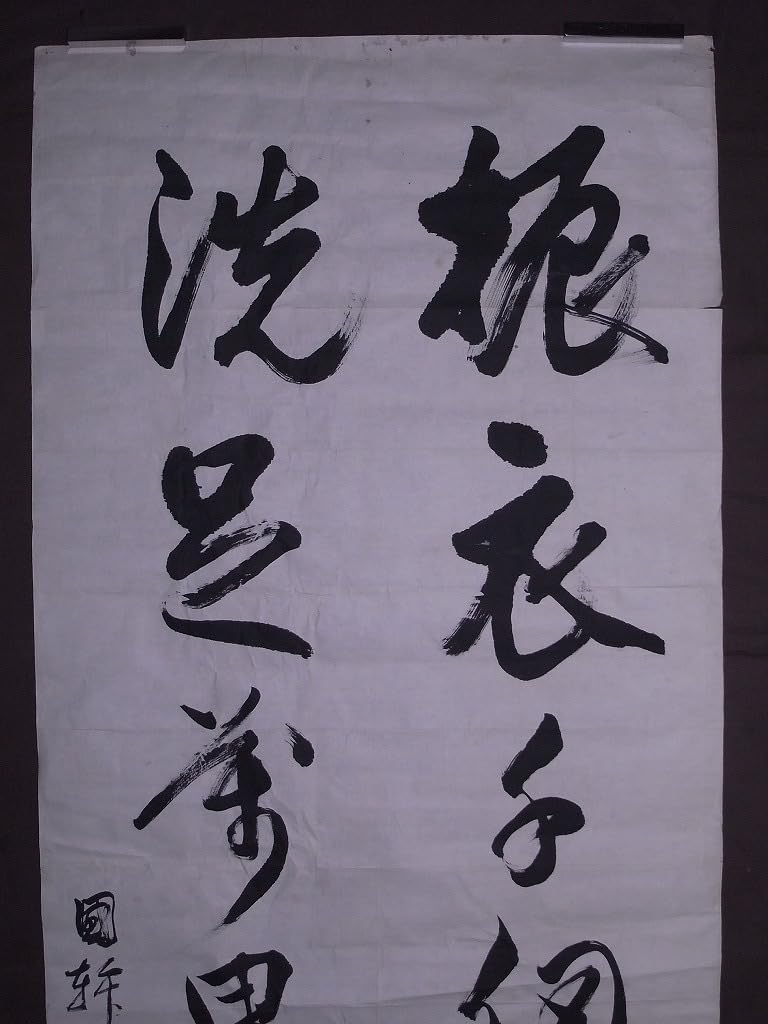 振衣千仞
洗足萬里
國軒